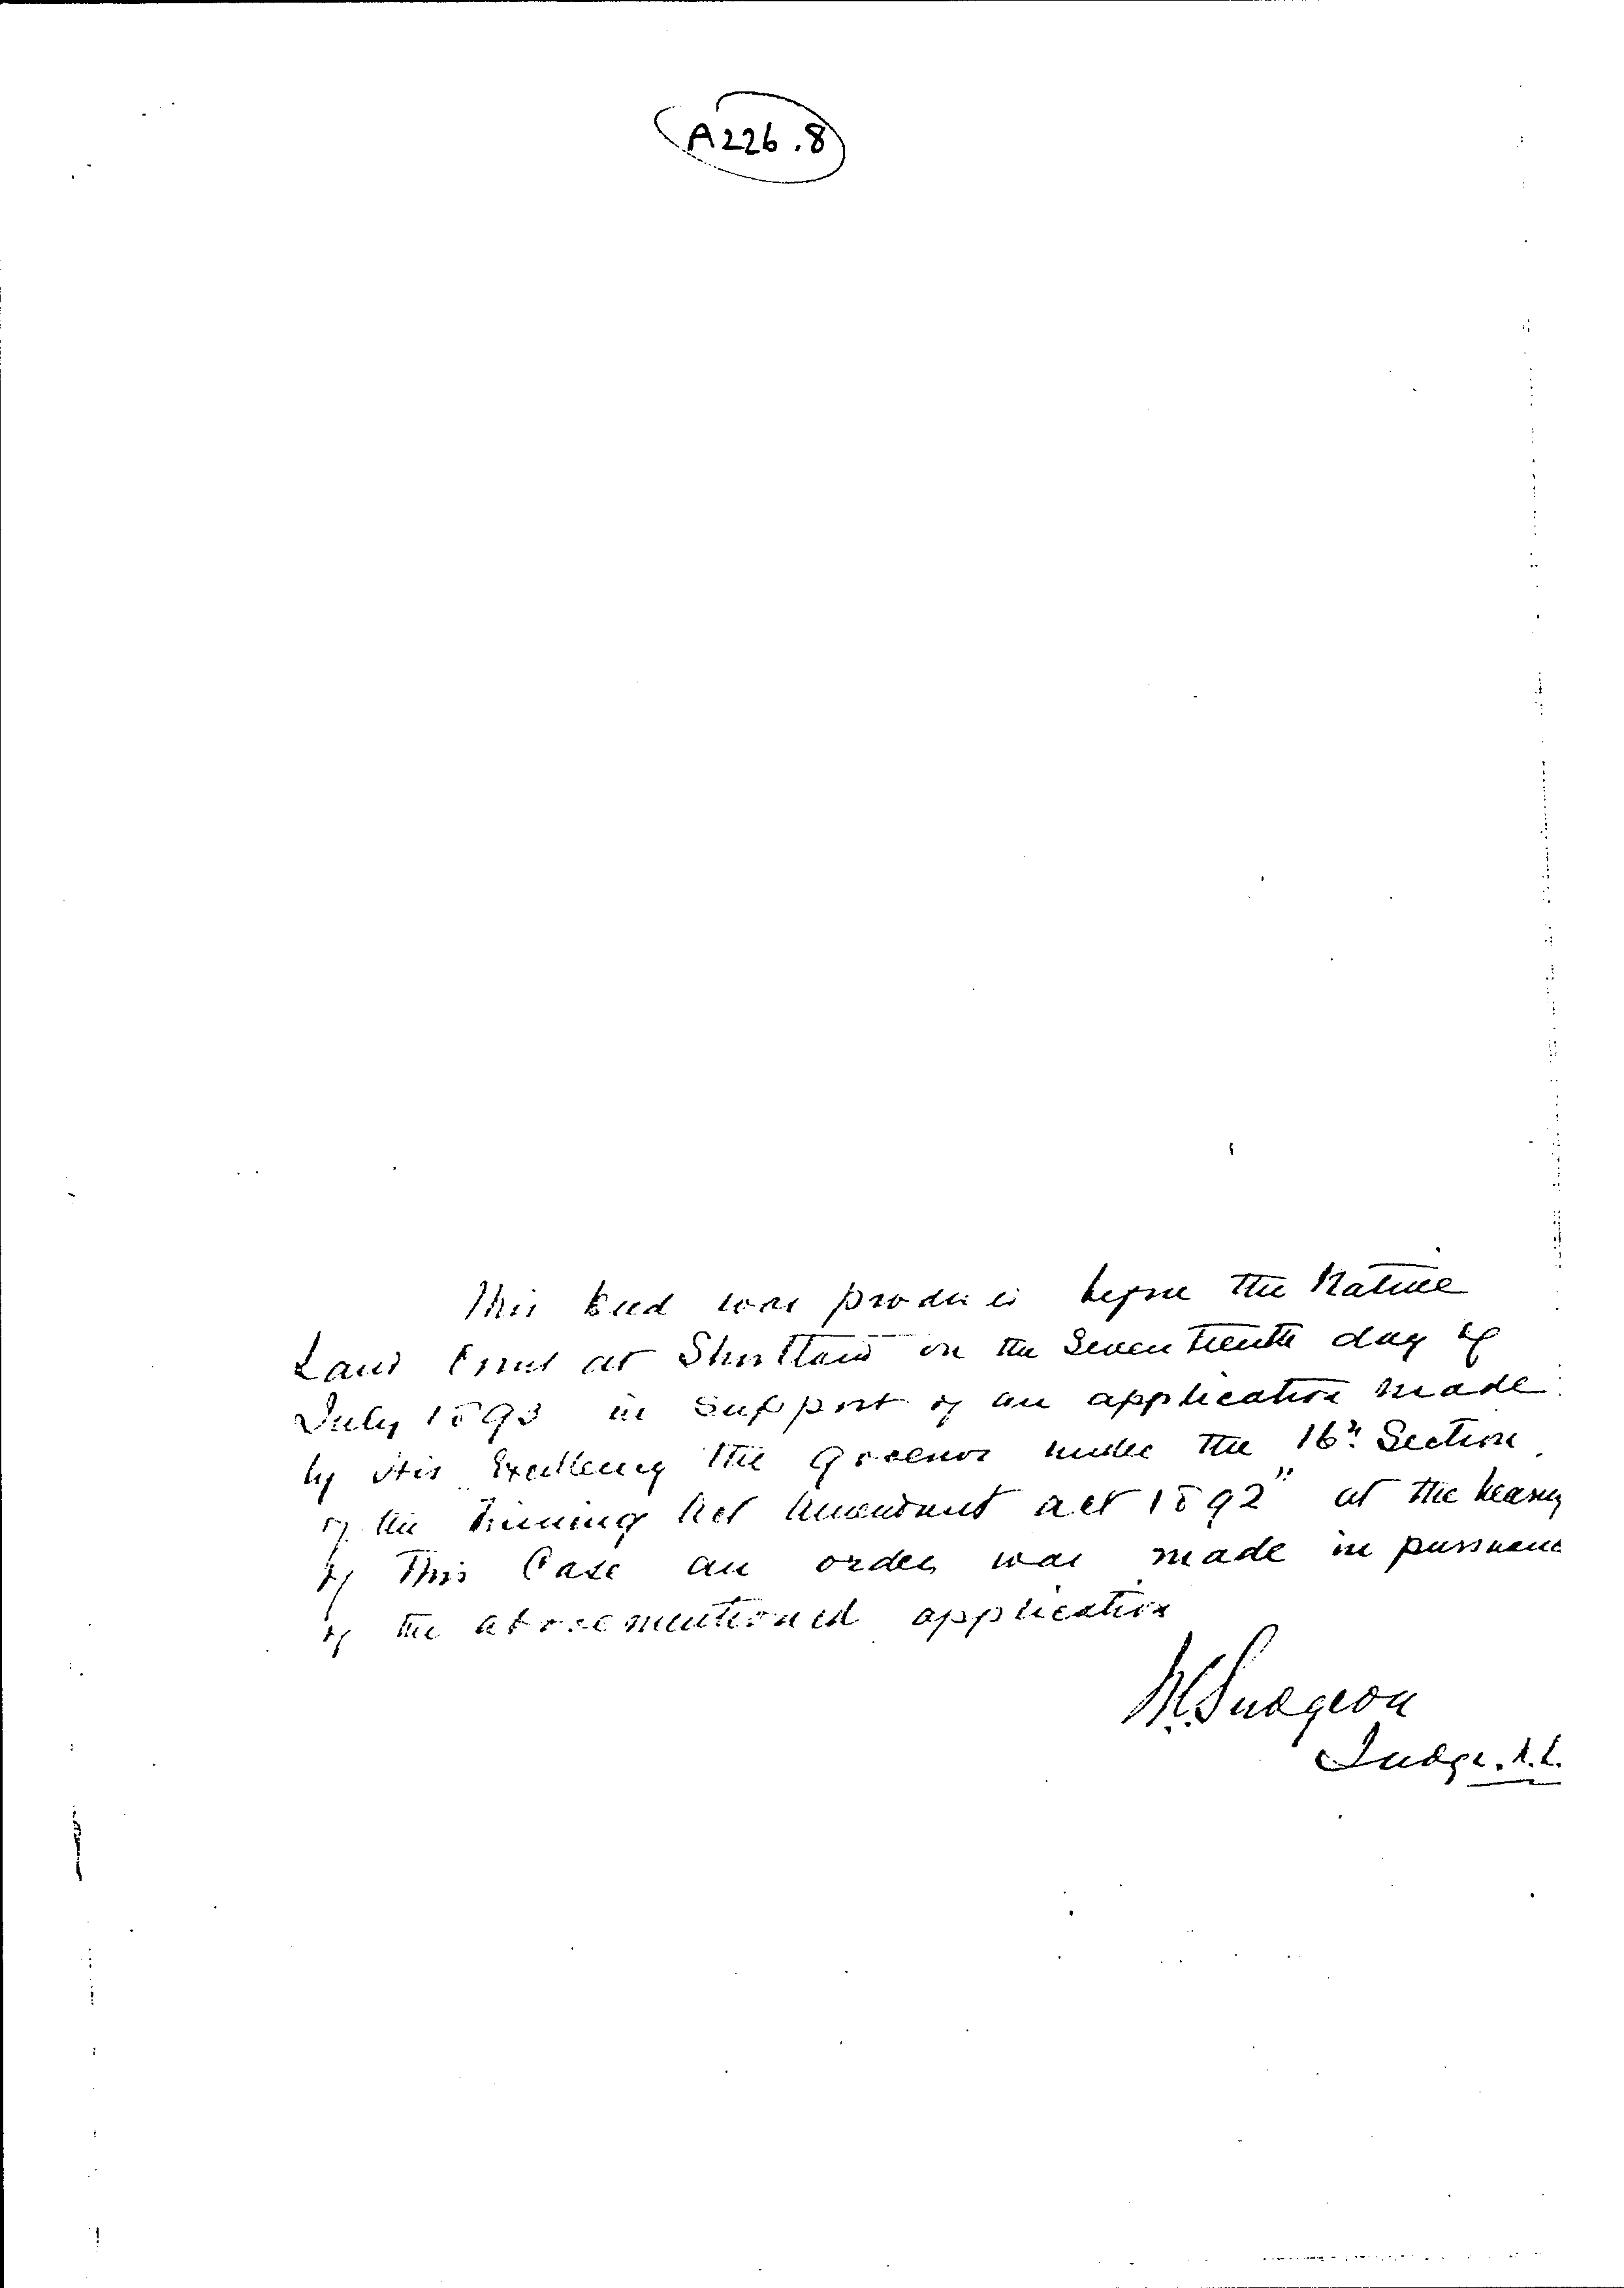 A226.8
This Deed was produced before the Native
Land Court at Shortland on the Seventeenth day of
July 1893 in support of an application made
by His Excellency the Governor under the 16th Section
of the Mining Act Amendment act 1892" at the hearing
of this Case an order was made in pursuance
of the aforementioned application
Judge. N.L.